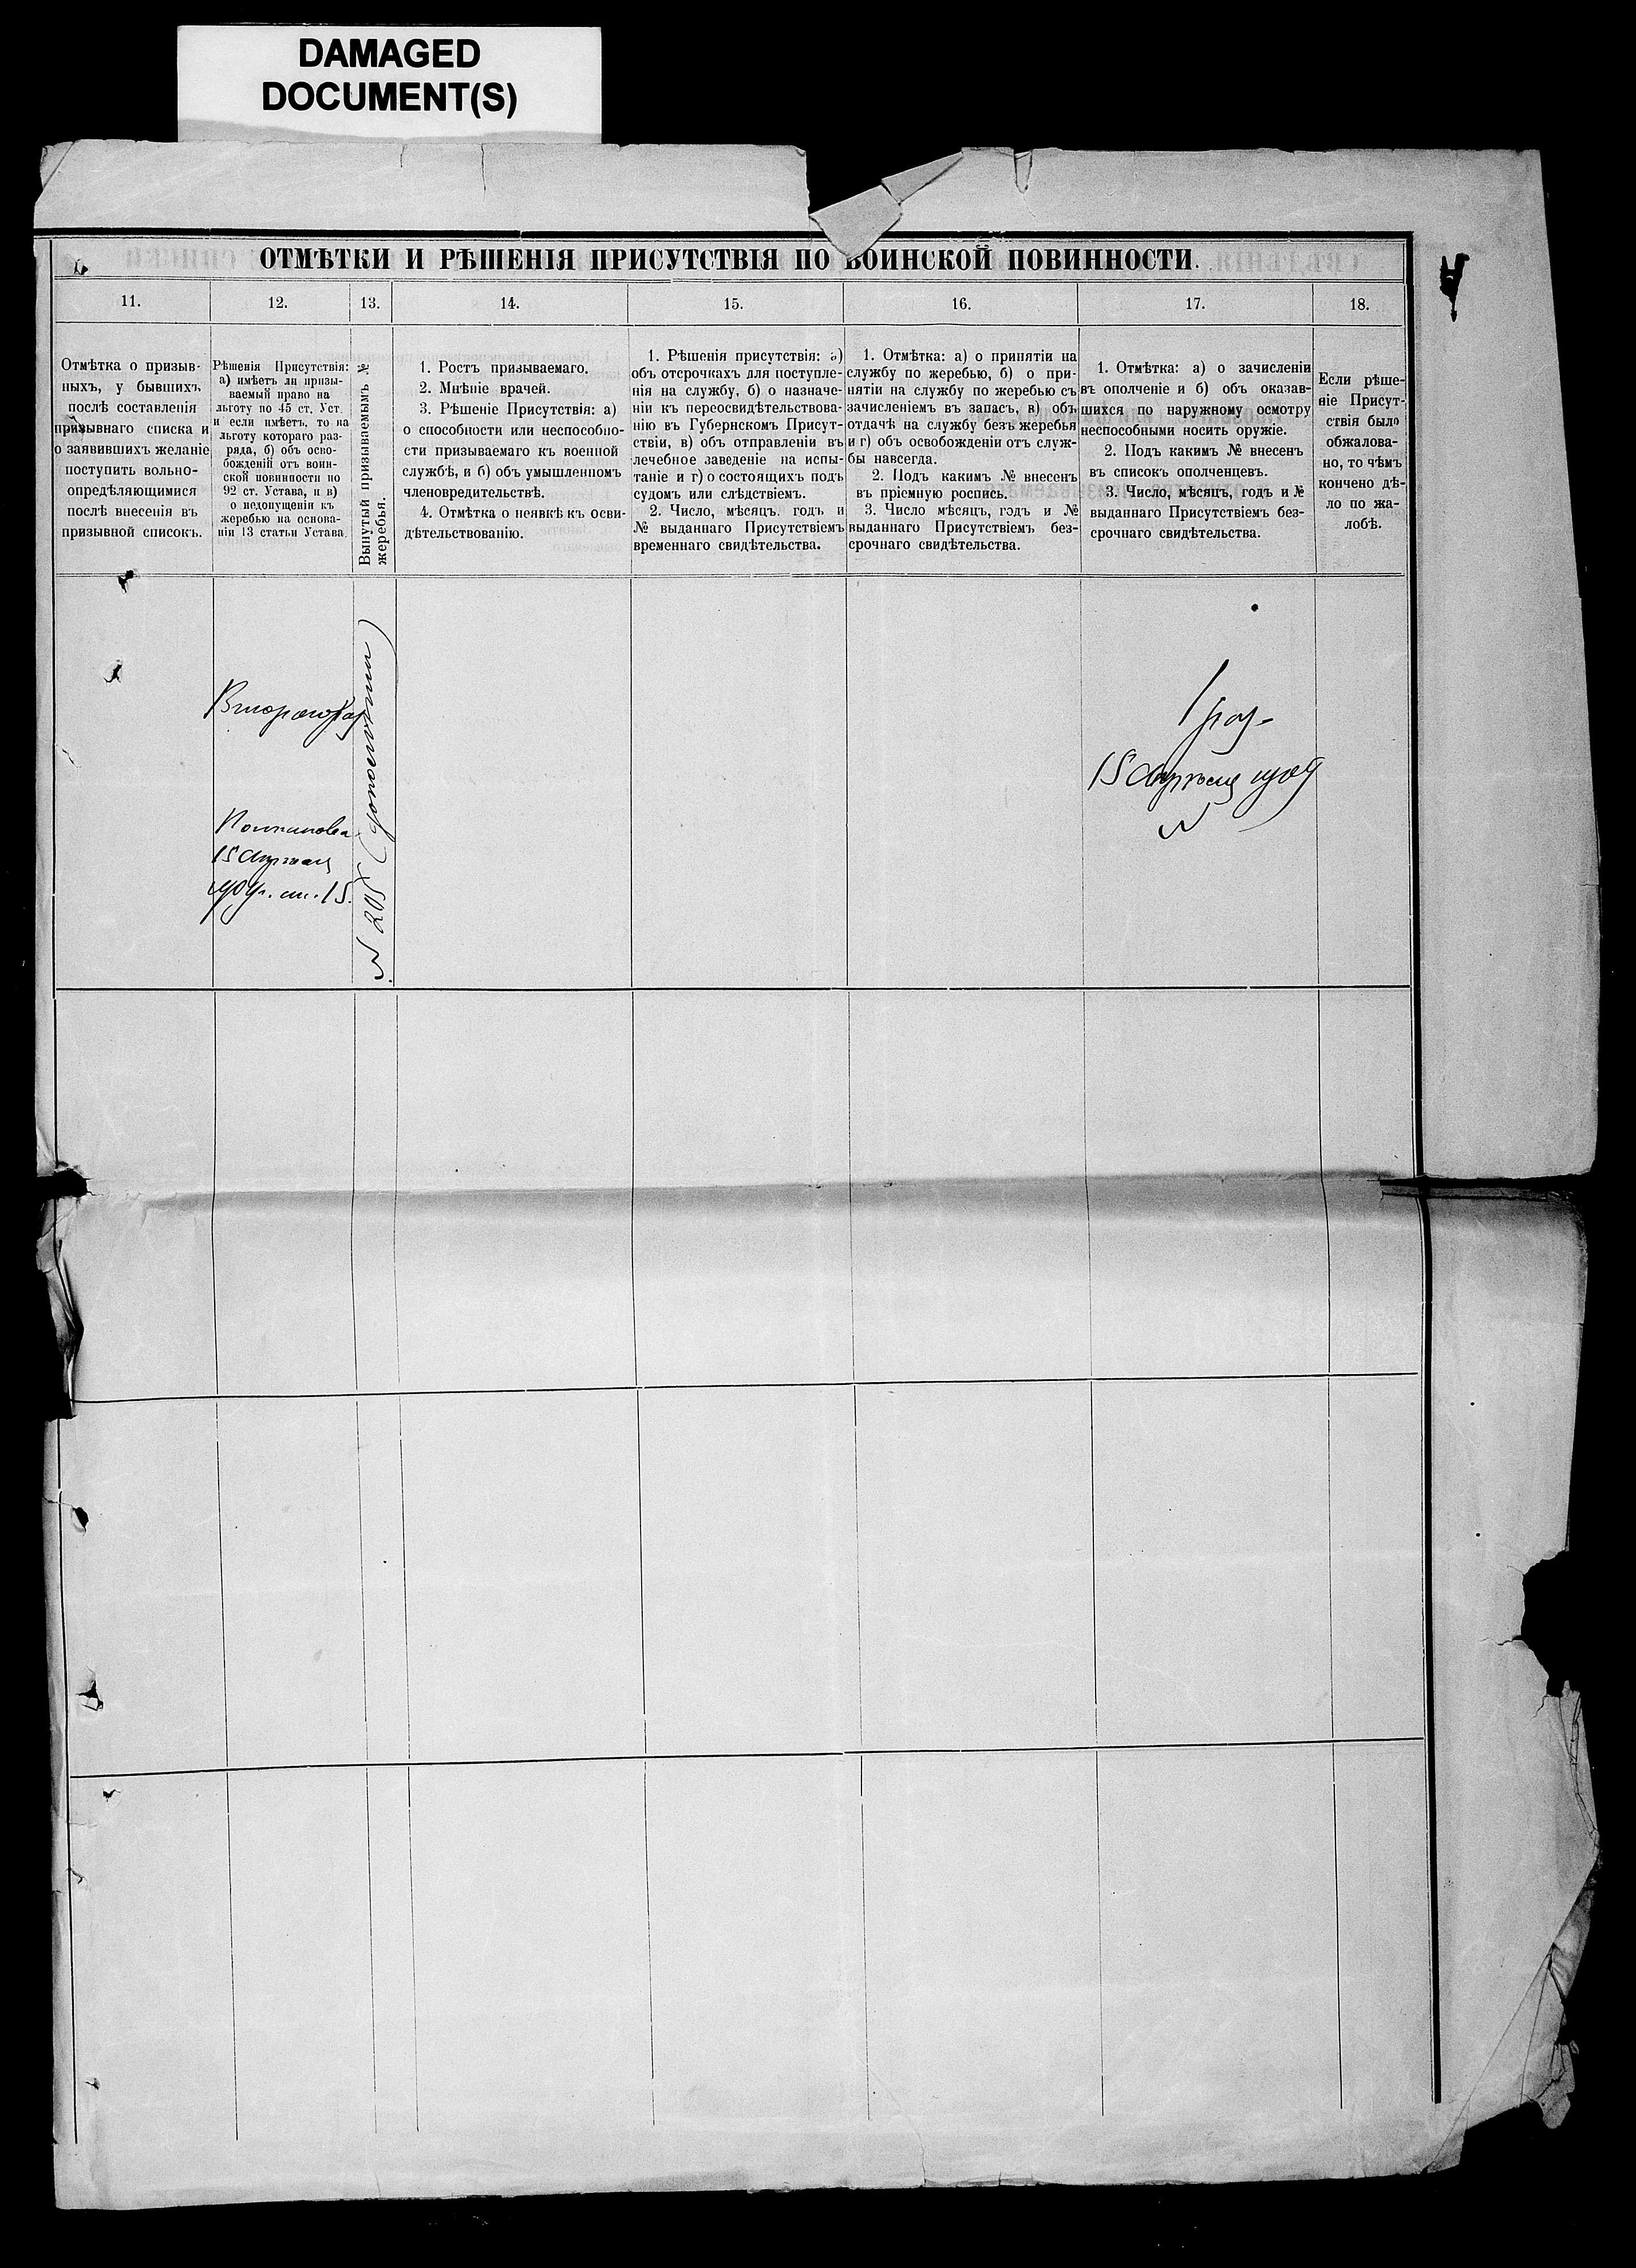 DAMAGED
DOCUMENT(S)
ОТМѢТКИ И РѢШЕНІЯ ПРИСУТСТВІЯ ПО ВОИНСКОЙ ПОВИННОСТИ.
11.
12.
13.
14.
15.
16.
17.
18.
Отмѣтка о призыв-
ныхъ, у бывшихъ
послѣ составленія
призывнаго списка и
о заявившихъ желаніе
поступить вольно-
опредѣляющимися
послѣ внесенія въ
призывной списокъ.
Рѣшенія Присутствія:
а) имѣетъ ли призы-
ваемый право на
льготу по 45 ст. Уст.
и если имѣетъ, то на
льготу котораго раз-
ряда, б) объ осво-
божденіи отъ воин-
ской повинности по
92 ст. Устава, и в)
о недопущеніи къ
жеребью на основа-
ніи 13 статьи Устава.
Вынутый призываемымъ №
жеребья.
1. Ростъ призываемаго.
2. Мнѣніе врачей.
3. Рѣшеніе Присутствія: а)
о способности или неспособно-
сти призываемаго къ военной
службѣ, и б) объ умышленномъ
членовредительствѣ.
4. Отмѣтка о неявкѣ къ осви-
дѣтельствованію.
1. Рѣшенія присутствія: а)
объ отсрочкахъ для поступле-
нія на службу, б) о назначе-
ніи къ переосвидѣтельствова-
нію въ Губернскомъ Присут-
ствіи, в) объ отправленіи въ
лечебное заведеніе на испы-
таніе и г) о состоящихъ подъ
судомъ или слѣдствіемъ.
2. Число, мѣсяцъ, годъ и
№ выданнаго Присутствіемъ
временнаго свидѣтельства.
1. Отмѣтка: а) о принятіи на
службу по жеребью, б) о при-
нятіи на службу по жеребью съ
зачисленіемъ въ запасъ, в) объ
отдачѣ на службу безъ жеребья
и г) объ освобожденіи отъ служ-
бы навсегда.
2. Подъ какимъ № внесенъ
въ пріемную роспись.
3. Число мѣсяцъ, годъ и №
выданнаго Присутствіемъ без-
срочнаго свидѣтельства.
1. Отмѣтка: а) о зачисленіи
въ ополченіе и б) объ оказав-
шихся по наружному осмотру
неспособными носить оружіе.
2. Подъ какимъ № внесенъ
въ списокъ ополченцевъ.
3. Число, мѣсяцъ, годъ и №
выданнаго Присутствіемъ без-
срочнаго свидѣтельства.
Если рѣше-
ніе Присут-
ствія было
обжалова-
но, то чѣмъ
кончено дѣ-
ло по жа-
лобѣ.
Втораго раз
15
ст. 15.
№
1 раз.
15
№